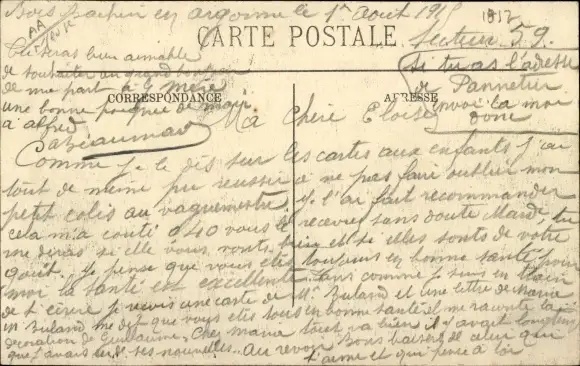 Bois en argonne le 1er août 191
CARTE POSTALE
Secteur 59.
Si tu as l'adresse
de Pannetier
envoi la moi
donc
Tu seras bien aimable
de souhaiter
de ma part à G Mère
une bonne poignée de main
à alfred
CORRESPONDANCE
ADRESSE
Ma Chère Eloise
Comme je le dis sur les cartes aux enfants j'ai
tout de meme pu reussir à ne pas faire oublier mon
petit colis au vaguemestre je l'ai fait recommander
cela m'a couté 0 40 vous le recevrez sans doute Mardi tu
me diras si elle vous vont bien et si elles sont de votre
goût. Je pense que vous etes toujours en bonne santé pour
moi la santé est excellente. Dans comme je suis en train
de t'ecrire je reçois une carte de Mr Buland et une lettre de Marie
Mr Buland me dit que vous etes tous en bonne santé et me raconte la
decoration de Guillaume. Chez Marie tout va bien il y avait longtemps
que j'avais ses nouvelles. au revoir Bons baisers de celui qui
t'aime et qui pense à toi